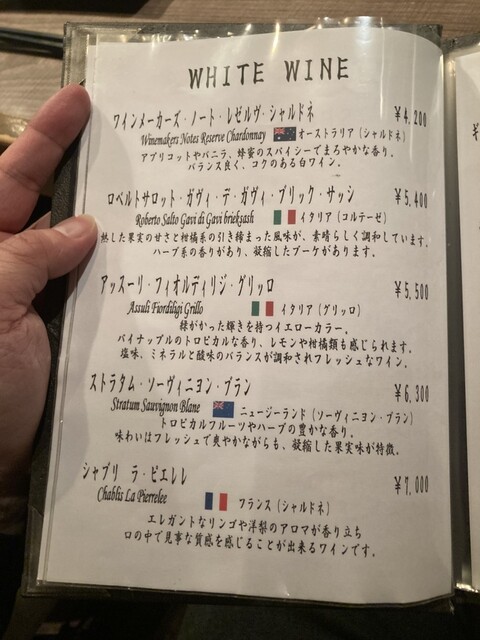 WHITE WINE
ワインメーカーズ・ノート・レゼルヴ・シャルドネ ¥4,200
Winemakers Notes Reserve Chardonnay オーストラリア (シャルドネ)
アプリコットやバニラ、蜂蜜のスパイシーでまろやかな香り。
バランス良く、コクのある白ワイン。
ロベルトサロット・ガヴィ・デ・ガヴィ・ブリック・サッシ ¥5,400
Roberto Salto Gavi di Gavi brieksash イタリア (コルテーゼ)
熟した果実の甘さと柑橘系の引き締まった風味が、素晴らしく調和しています。
ハーブ系の香りがあり、凝縮したブーケがあります。
アッスーリ・フィオルディリジ・グリッロ ¥5,500
Assuli Fiordiligi Grillo イタリア (グリッロ)
緑がかった輝きを持つイエローカラー。
パイナップルのトロピカルな香り、レモンや柑橘類も感じられます。
塩味、ミネラルと酸味のバランスが調和されフレッシュなワイン。
ストラタム・ソーヴィニヨン・ブラン ¥6,300
Stratum Sauvignon Blanc ニュージーランド (ソーヴィニヨン・ブラン)
トロピカルフルーツやハーブの豊かな香り。
味わいはフレッシュで爽やかながらも、凝縮した果実味が特徴。
シャブリ ラ・ピエレレ ¥7,000
Chablis La Pierrelee フランス (シャルドネ)
エレガントなリンゴや洋梨のアロマが香り立ち
口の中で見事な質感を感じることが出来るワインです。